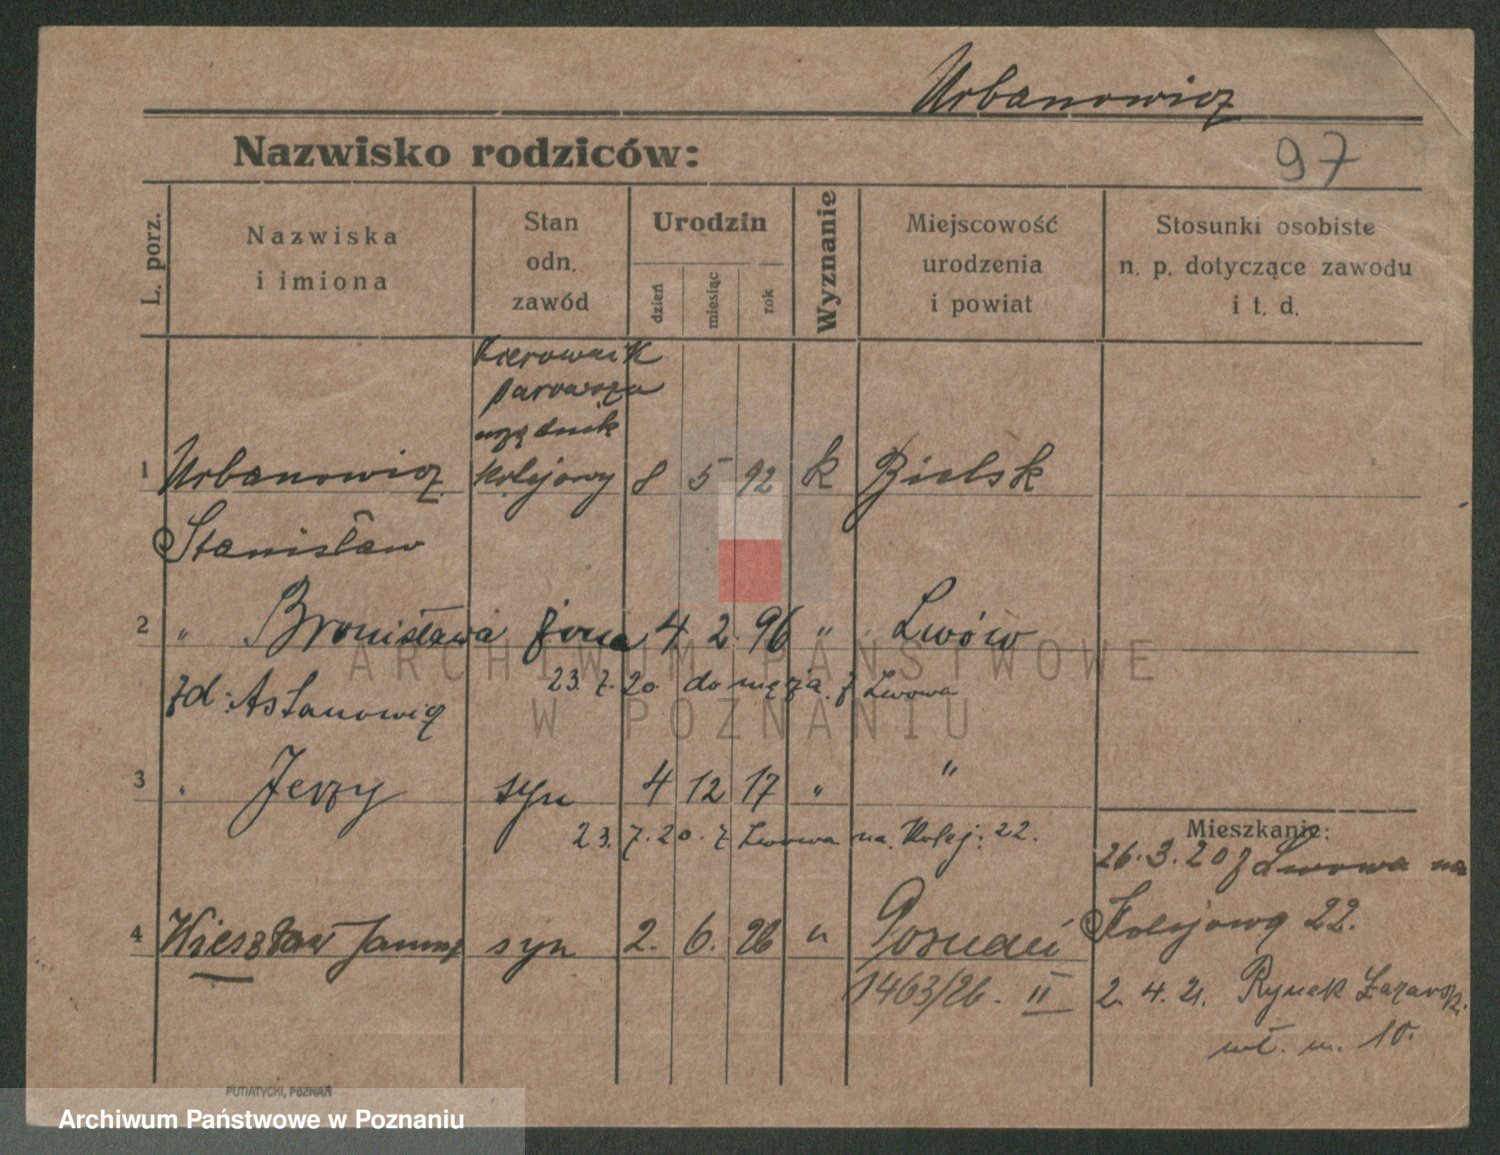 Urbanowicz
Nazwisko rodziców:
97
L. porz.
Nazwiska
i imiona
Stan
odn.
zawód
Urodzin
dzień
miesiąc
rok
Wyznanie
Miejscowość
urodzenia
i powiat
Stosunki osobiste
n. p. dotyczące zawodu
i t. d.
kierownik
parowozu
urzędnik
1 Urbanowicz kolejowy 8 5 92 k Bielsk
Stanisław
2 " Bronisława żona 4 2. 96 " Lwów
zd: Astanowicz 23. 7. 20 do męża z Lwowa
3 " Jerzy syn 4 12 17 " "
23. 7. 20. z Lwowa na Kolej: 22.
Mieszkanie:
26. 3. 20 z Lwowa na
Kolejową 22.
4 Wiesław syn 2. 6. 26 " Poznań
1463/26. II
2. 4. 21. Rynek Łazarsk.
m. 10.
ARCHIWUM PAŃSTWOWE
W POZNANIU
PUTIATYCKI, POZNAŃ
Archiwum Państwowe w Poznaniu